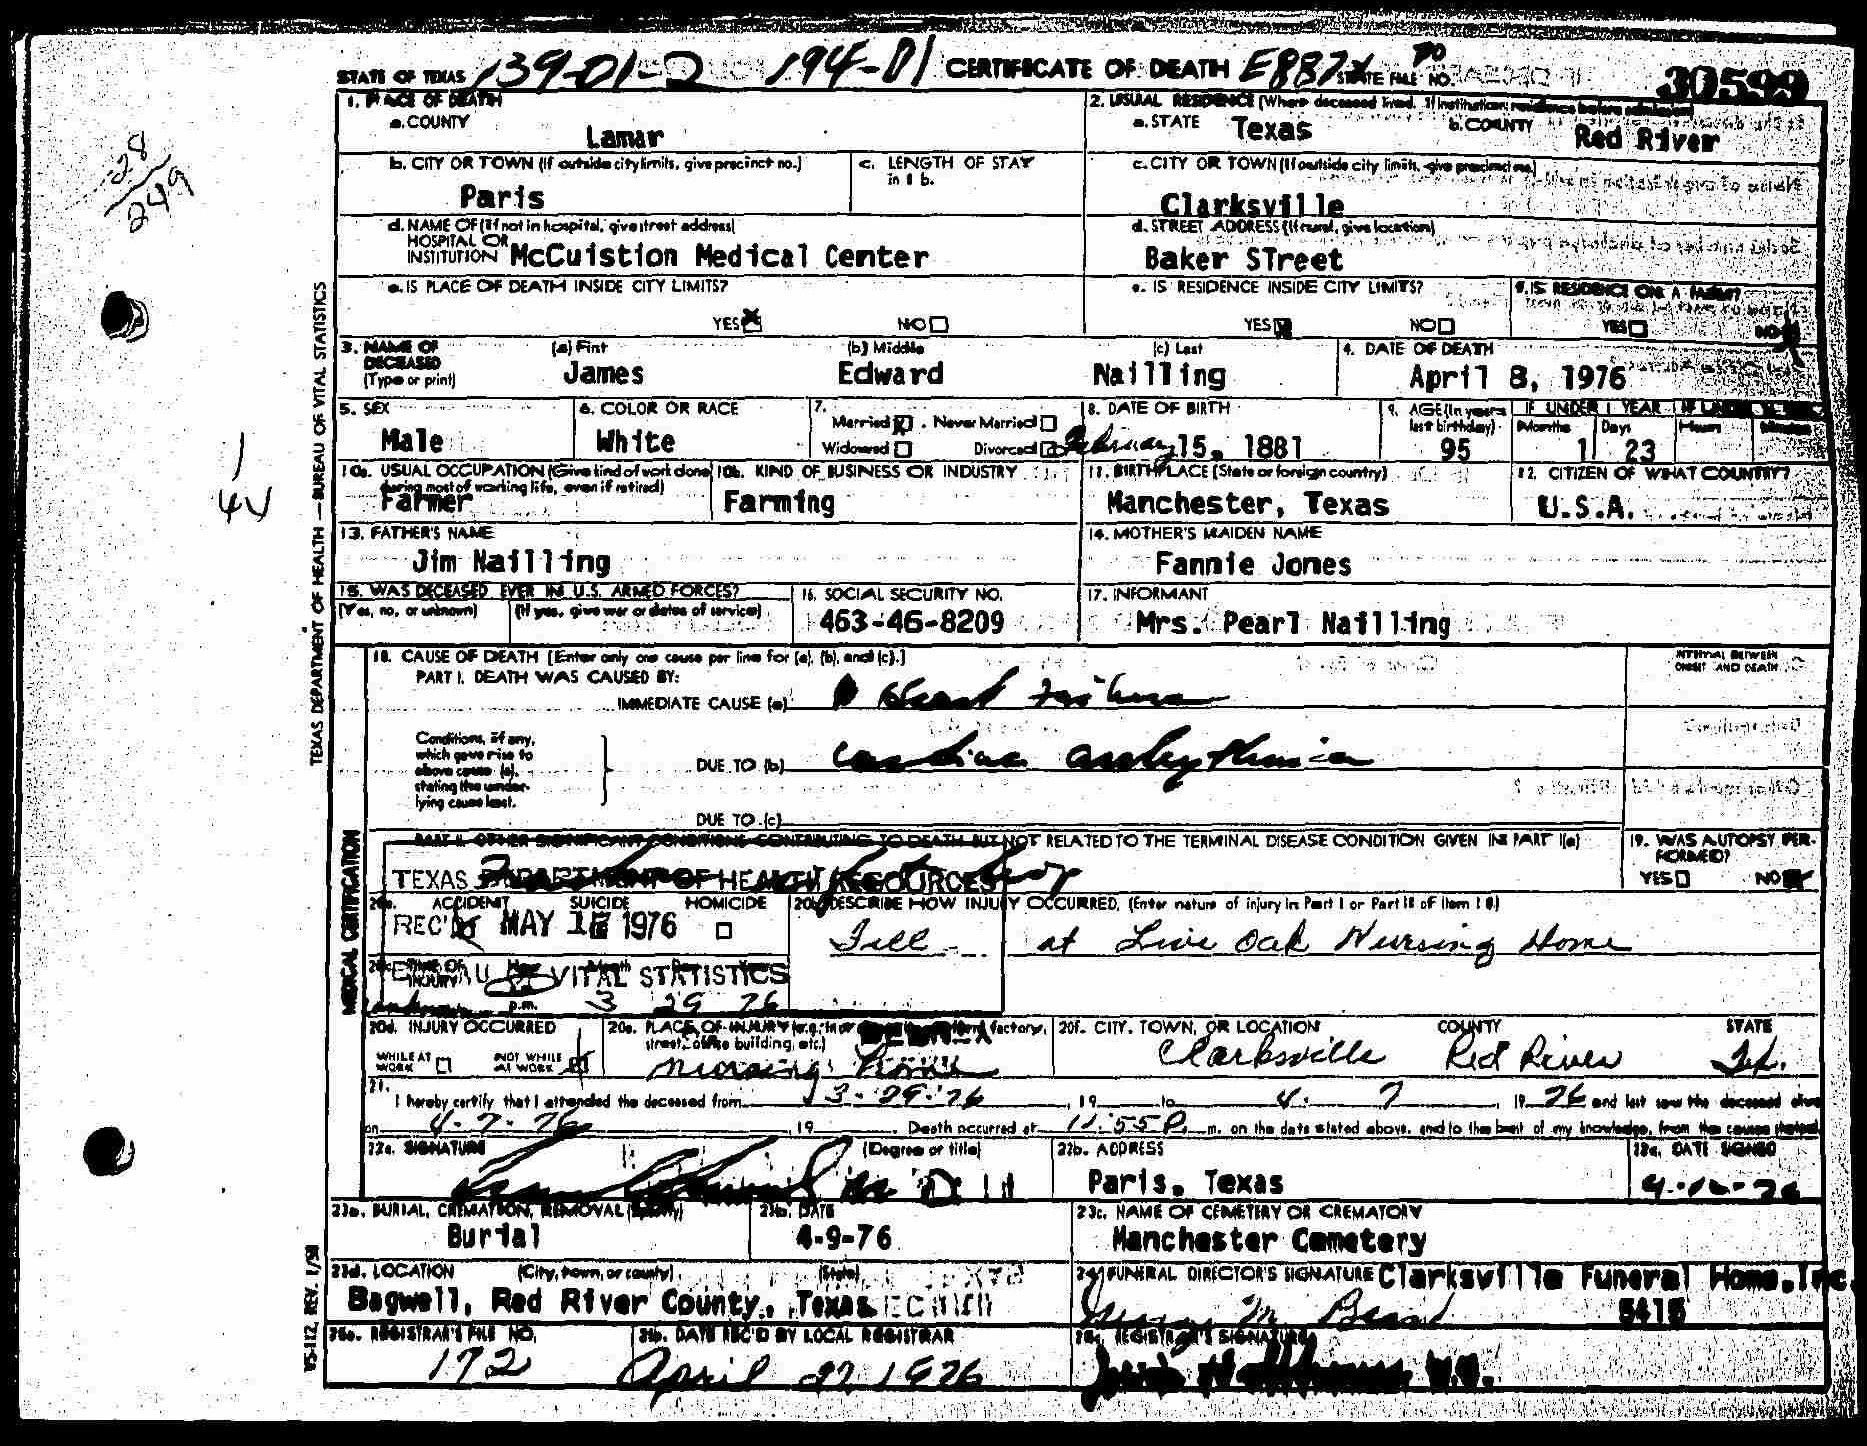 STATE OF TEXAS 139-01-2 194-01 CERTIFICATE OF DEATH E887X STATE FILE NO. 30599
1. PLACE OF DEATH
a. COUNTY
Lamar
2. USUAL RESIDENCE (Where deceased lived. If institution: residence before admission)
a. STATE Texas b. COUNTY Red River
b. CITY OR TOWN (If outside city limits, give precinct no.)
Paris
c. LENGTH OF STAY in 1 b.
c. CITY OR TOWN (If outside city limits, give precinct no.)
Clarksville
28
249
d. NAME OF (If not in hospital, give street address)
HOSPITAL OR
INSTITUTION McCuistion Medical Center
d. STREET ADDRESS (If rural, give location)
Baker STreet
e. IS PLACE OF DEATH INSIDE CITY LIMITS?
YES NO
e. IS RESIDENCE INSIDE CITY LIMITS?
YES NO
f. IS RESIDENCE ON A FARM?
YES NO
3. NAME OF DECEASED (Type or print)
(a) First James
(b) Middle Edward
(c) Last Nailling
4. DATE OF DEATH
April 8, 1976
5. SEX
Male
6. COLOR OR RACE
White
7.
Married Never Married
Widowed Divorced
8. DATE OF BIRTH
February 15, 1881
9. AGE (In years last birthday)
95
IF UNDER 1 YEAR
Months 1 Days 23
Hours Minutes
10a. USUAL OCCUPATION (Give kind of work done during most of working life, even if retired)
Farmer
10b. KIND OF BUSINESS OR INDUSTRY
Farming
11. BIRTHPLACE (State or foreign country)
Manchester, Texas
12. CITIZEN OF WHAT COUNTRY?
U.S.A.
1
4V
13. FATHER'S NAME
Jim Nailling
14. MOTHER'S MAIDEN NAME
Fannie Jones
15. WAS DECEASED EVER IN U.S. ARMED FORCES?
(Yes, no, or unknown) (If yes, give war or dates of service)
16. SOCIAL SECURITY NO.
463-46-8209
17. INFORMANT
Mrs. Pearl Nailling
TEXAS DEPARTMENT OF HEALTH — BUREAU OF VITAL STATISTICS
MEDICAL CERTIFICATION
18. CAUSE OF DEATH [Enter only one cause per line for (a), (b), and (c).]
PART I. DEATH WAS CAUSED BY:
IMMEDIATE CAUSE (a) Heart Failure
INTERVAL BETWEEN ONSET AND DEATH
Conditions, if any,
which gave rise to
above cause (a),
stating the under-
lying cause last.
DUE TO (b) Cardiac arrhythmia
DUE TO (c)
PART II. OTHER SIGNIFICANT CONDITIONS CONTRIBUTING TO DEATH BUT NOT RELATED TO THE TERMINAL DISEASE CONDITION GIVEN IN PART I(a)
19. WAS AUTOPSY PERFORMED?
YES NO
TEXAS DEPARTMENT OF HEALTH RESOURCES
REC'D MAY 1976
BUREAU OF VITAL STATISTICS
20a. ACCIDENT SUICIDE HOMICIDE
20b. DESCRIBE HOW INJURY OCCURRED. (Enter nature of injury in Part I or Part II of item 18.)
Fell at Live Oak Nursing Home
20c. TIME OF INJURY Hour Month Day Year
unknown p.m. 3 29 76
20d. INJURY OCCURRED
WHILE AT WORK NOT WHILE AT WORK
20e. PLACE OF INJURY factory, street, office building, etc.)
nursing home
20f. CITY, TOWN, OR LOCATION COUNTY STATE
Clarksville Red River Tex.
21.
I hereby certify that I attended the deceased from 3-29-76, 19 to 4- 7, 1976 and last saw the deceased alive
on 4-7-76, 19 . Death occurred at 11:55 P. m. on the date stated above, and to the best of my knowledge, from the causes stated.
22a. SIGNATURE (Degree or title)
M D
22b. ADDRESS
Paris, Texas
22c. DATE SIGNED
23a. BURIAL, CREMATION, REMOVAL (Specify)
Burial
23b. DATE
4-9-76
23c. NAME OF CEMETERY OR CREMATORY
Manchester Cemetery
23d. LOCATION (City, town, or county) (State)
Bagwell, Red River County, Texas
24. FUNERAL DIRECTOR'S SIGNATURE Clarksville Funeral Home, Inc.
5415
25a. REGISTRAR'S FILE NO.
172
25b. DATE REC'D BY LOCAL REGISTRAR
April 27 1976
25c. REGISTRAR'S SIGNATURE
VS-112, REV. 1/58